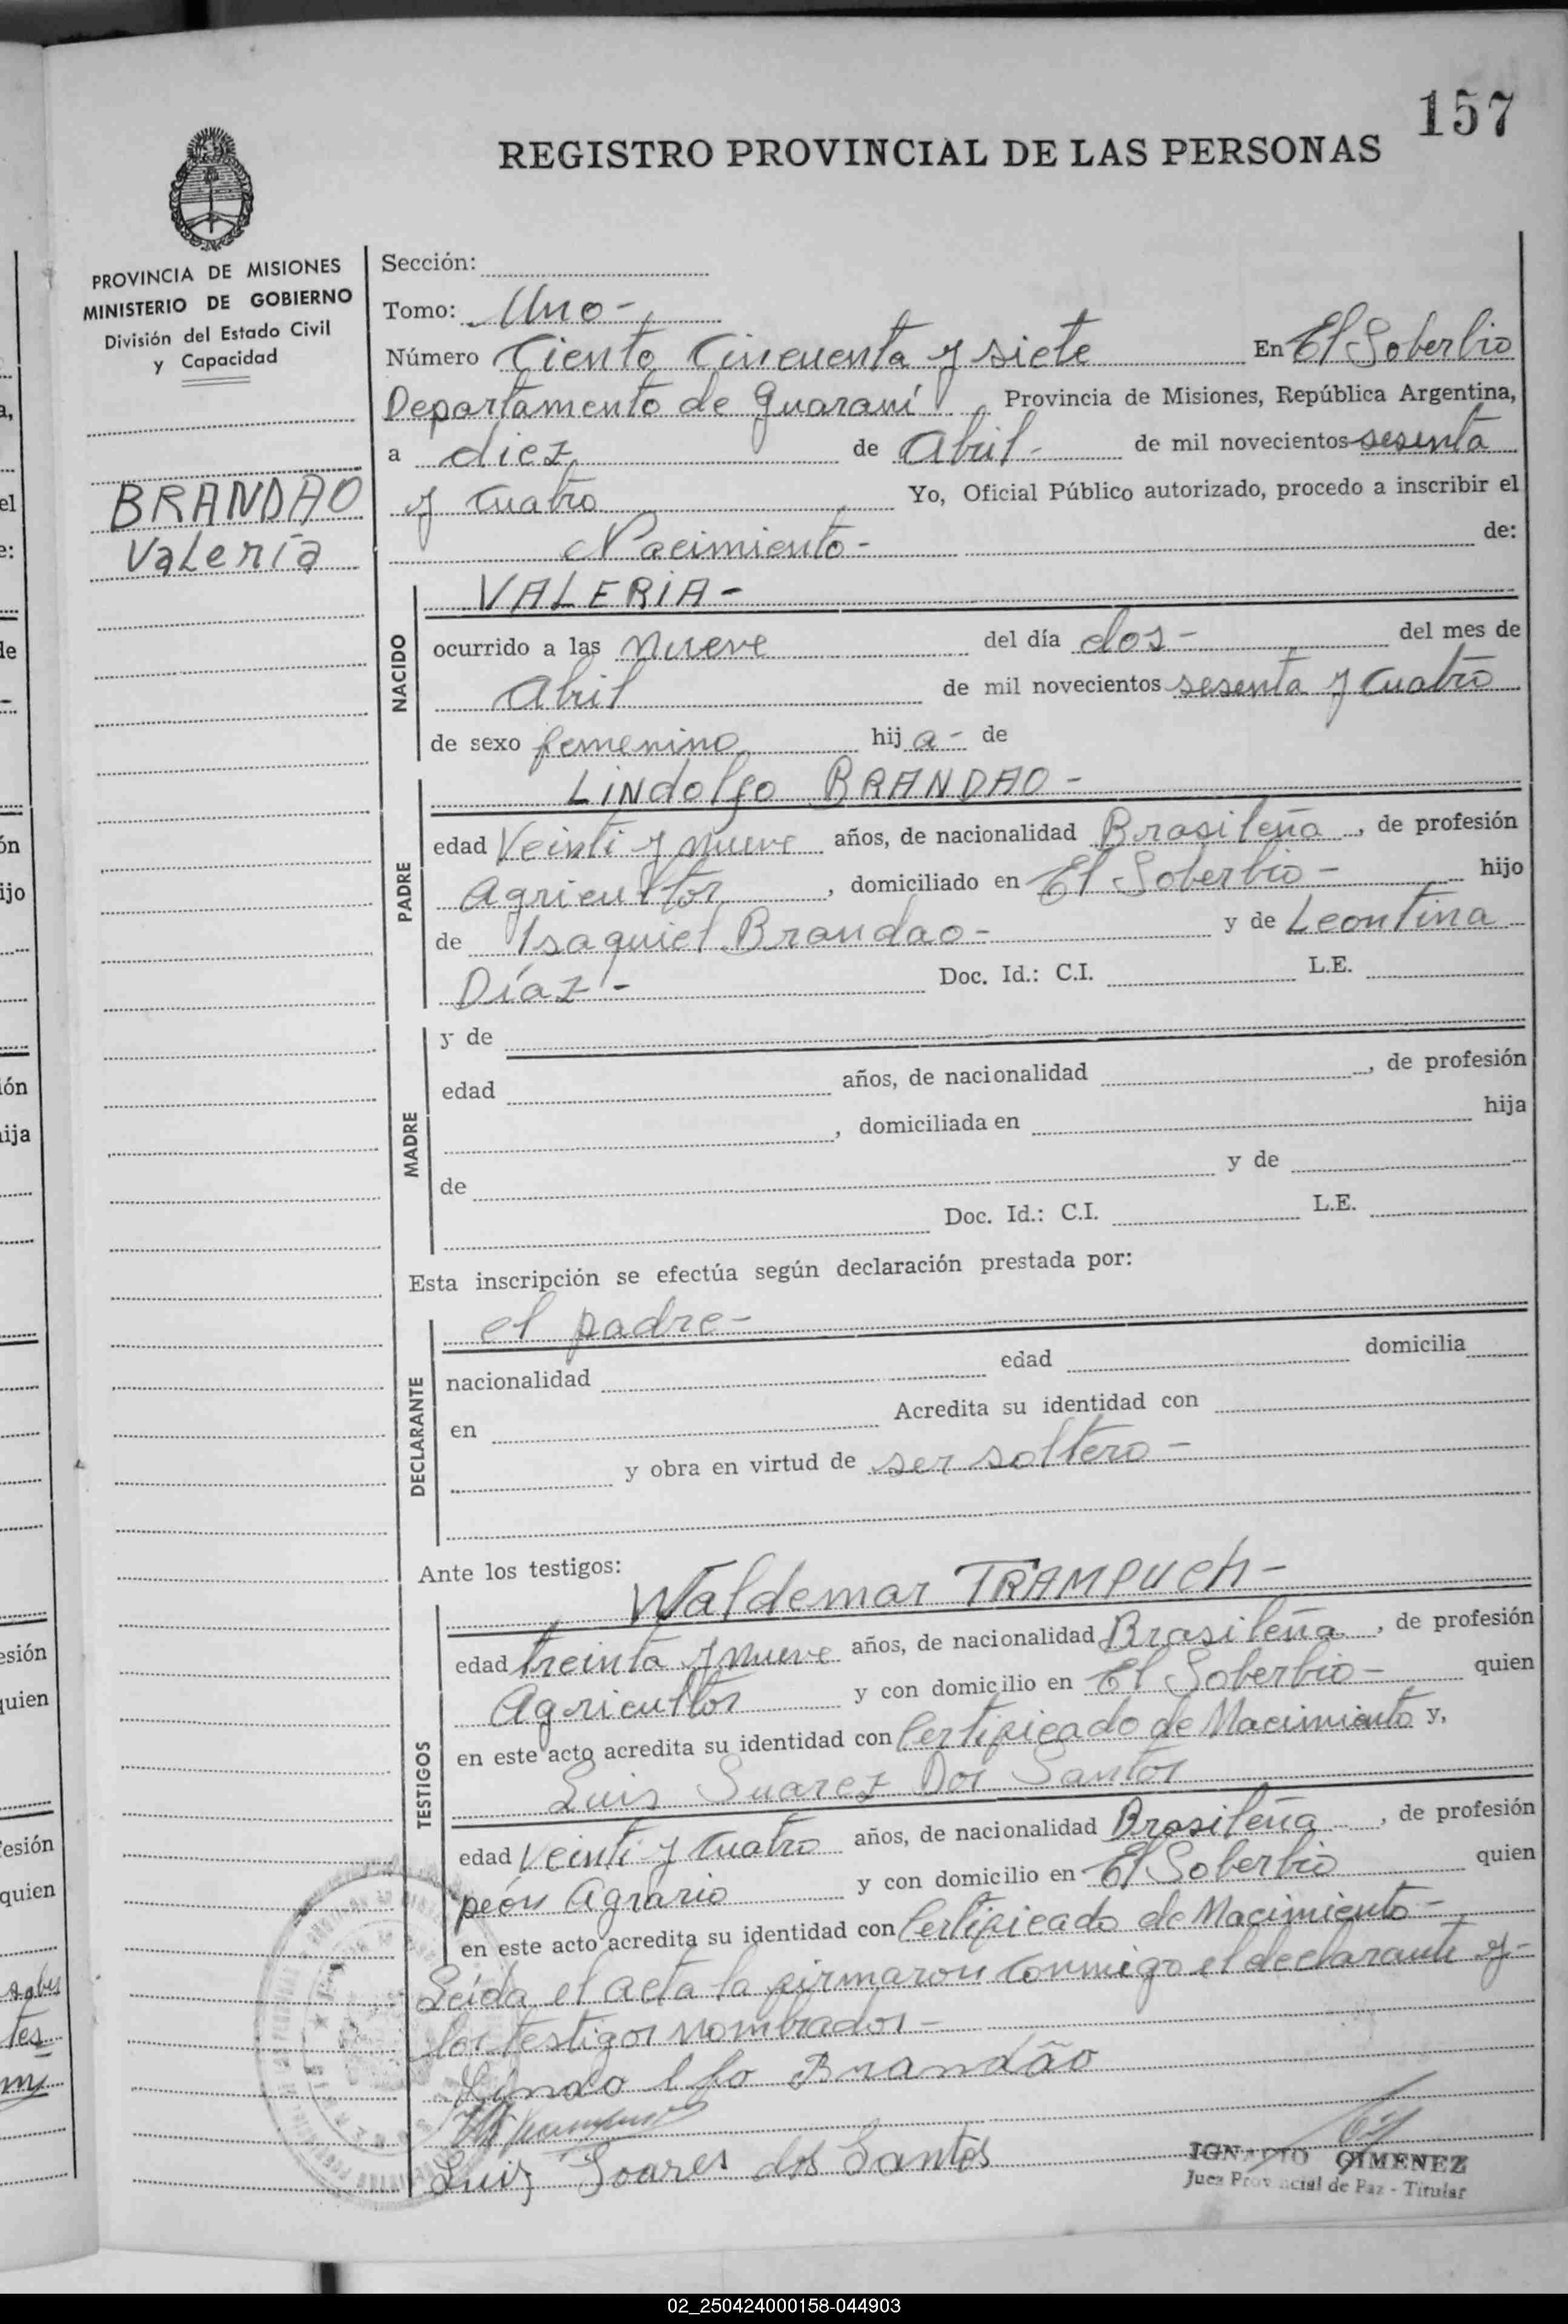 157
REGISTRO PROVINCIAL DE LAS PERSONAS
PROVINCIA DE MISIONES
MINISTERIO DE GOBIERNO
División del Estado Civil
y Capacidad
BRANDAO
Valería
Sección:
Tomo: Uno-
Número Ciento Cincuenta y siete En El Soberbio
Departamento de Guaraní Provincia de Misiones, República Argentina,
a diez de Abril- de mil novecientos sesenta
y cuatro Yo, Oficial Público autorizado, procedo a inscribir el
Nacimiento- de:
NACIDO
VALERIA-
ocurrido a las nueve del día dos- del mes de
Abril de mil novecientos sesenta y cuatro
de sexo femenino hij a- de
PADRE
Lindolfo BRANDAO-
edad Veinti y nueve años, de nacionalidad Brasileña, de profesión
Agricultor, domiciliado en El Soberbio- hijo
de Isaquiel Brandao- y de Leontina
Díaz- Doc. Id.: C.I. L.E.
MADRE
y de
edad años, de nacionalidad , de profesión
, domiciliada en hija
de y de
Doc. Id.: C.I. L.E.
Esta inscripción se efectúa según declaración prestada por:
DECLARANTE
el padre-
nacionalidad edad domicilia
en Acredita su identidad con
y obra en virtud de ser soltero-
Ante los testigos:
TESTIGOS
Waldemar TRAMPUCH-
edad treinta y nueve años, de nacionalidad Brasileña, de profesión
Agricultor y con domicilio en El Soberbio- quien
en este acto acredita su identidad con Certificado de Nacimiento y,
Luis Suarez Dos Santos
edad Veinti y cuatro años, de nacionalidad Brasileña, de profesión
peón Agrario y con domicilio en El Soberbio quien
en este acto acredita su identidad con Certificado de Nacimiento-
Leída el acta la firmaron conmigo el declarante y-
los testigos nombrados-
Lindolfo Brandão
Luiz Soares dos Santos
IGNACIO GIMENEZ
Juez Provincial de Paz - Titular
02_250424000158-044903